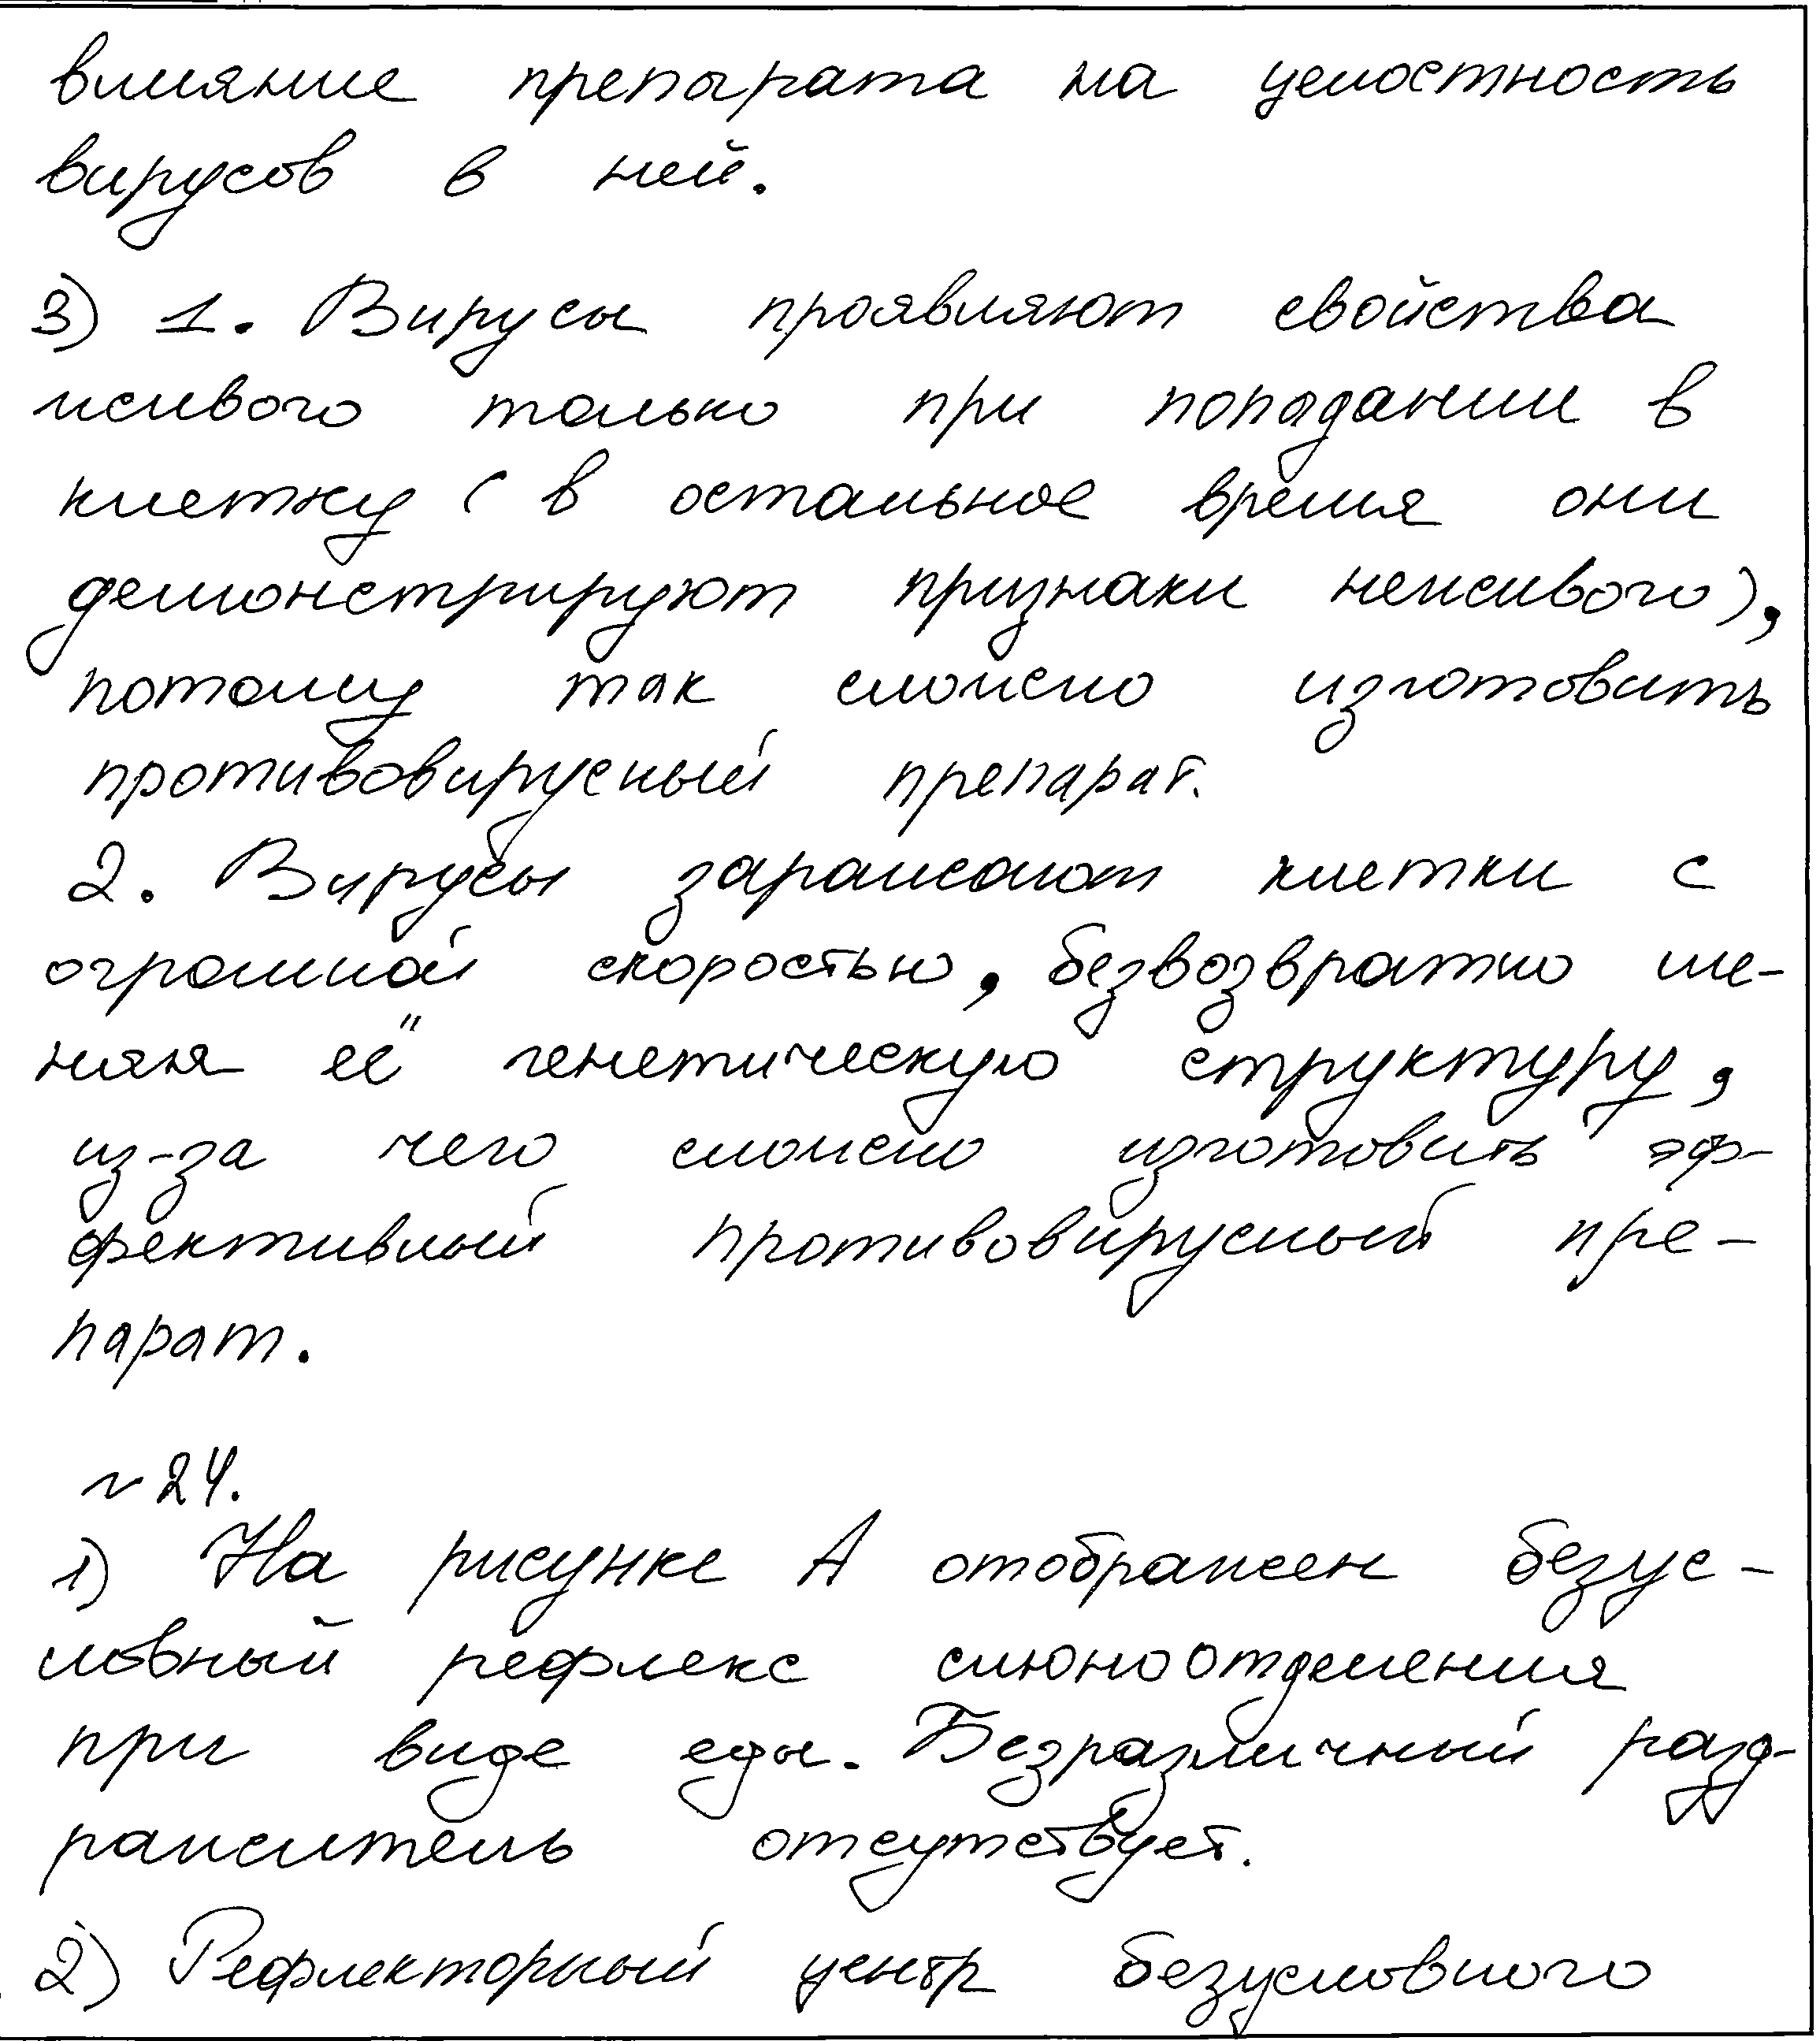 влияние препарата на целостность
вирусов в ней.
3) 1. Вирусы проявляют свойства
живого только при попадании в
клетку (в остальное время они
демонстрируют признаки неживого),
потому так сложно изготовить
противовирусный препарат.
2. Вирусы заражают клетки с
огромной скоростью, безвозвратно ме-
няя её генетическую структуру,
из-за чего сложно изготовить эф-
фективный противовирусный пре-
парат.
№24.
1) На рисунке А отображен безус-
ловный рефлекс слюноотделения
при виде еды. Безразличный разд-
ражитель отсутствует.
2) Рефлекторный центр безусловного